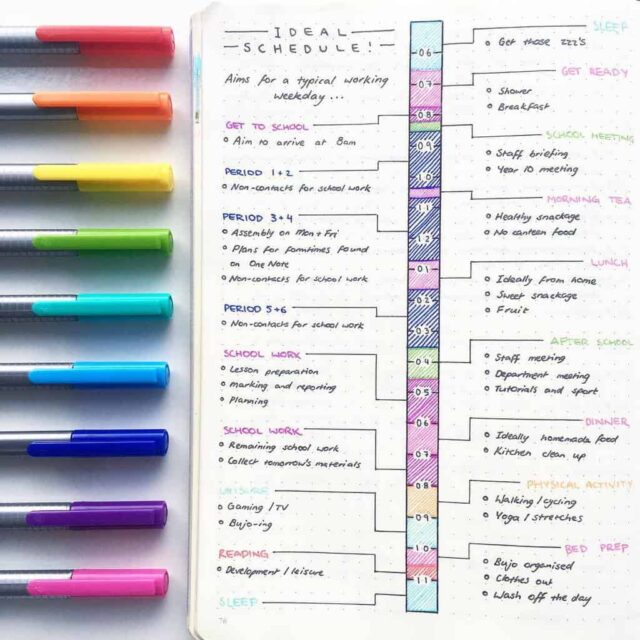 IDEAL
SCHEDULE!
Aims for a typical working
weekday...
GET TO SCHOOL
Aim to arrive at 8am
PERIOD 1+2
Non-contacts for school work
PERIOD 3+4
Assembly on Mon + Fri
Plans for formtimes found
on OneNote
Non-contacts for school work
PERIOD 5+6
Non-contacts for school work
SCHOOL WORK
Lesson preparation
marking and reporting
Planning
SCHOOL WORK
Remaining school work
Collect tomorrow's materials
LEISURE
Gaming / TV
Bujo-ing
READING
Development / leisure
SLEEP
06
07
08
09
10
11
12
01
02
03
04
05
06
07
08
09
10
11
SLEEP
Get those zzz's
GET READY
Shower
Breakfast
SCHOOL MEETING
Staff briefing
Year 10 meeting
MORNING TEA
Healthy snackage
No canteen food
LUNCH
Ideally from home
Sweet snackage
Fruit
AFTER SCHOOL
Staff meeting
Department meeting
Tutorials and sport
DINNER
Ideally homemade food
Kitchen clean up
PHYSICAL ACTIVITY
Walking / cycling
Yoga / stretches
BED PREP
Bujo organised
Clothes out
Wash off the day